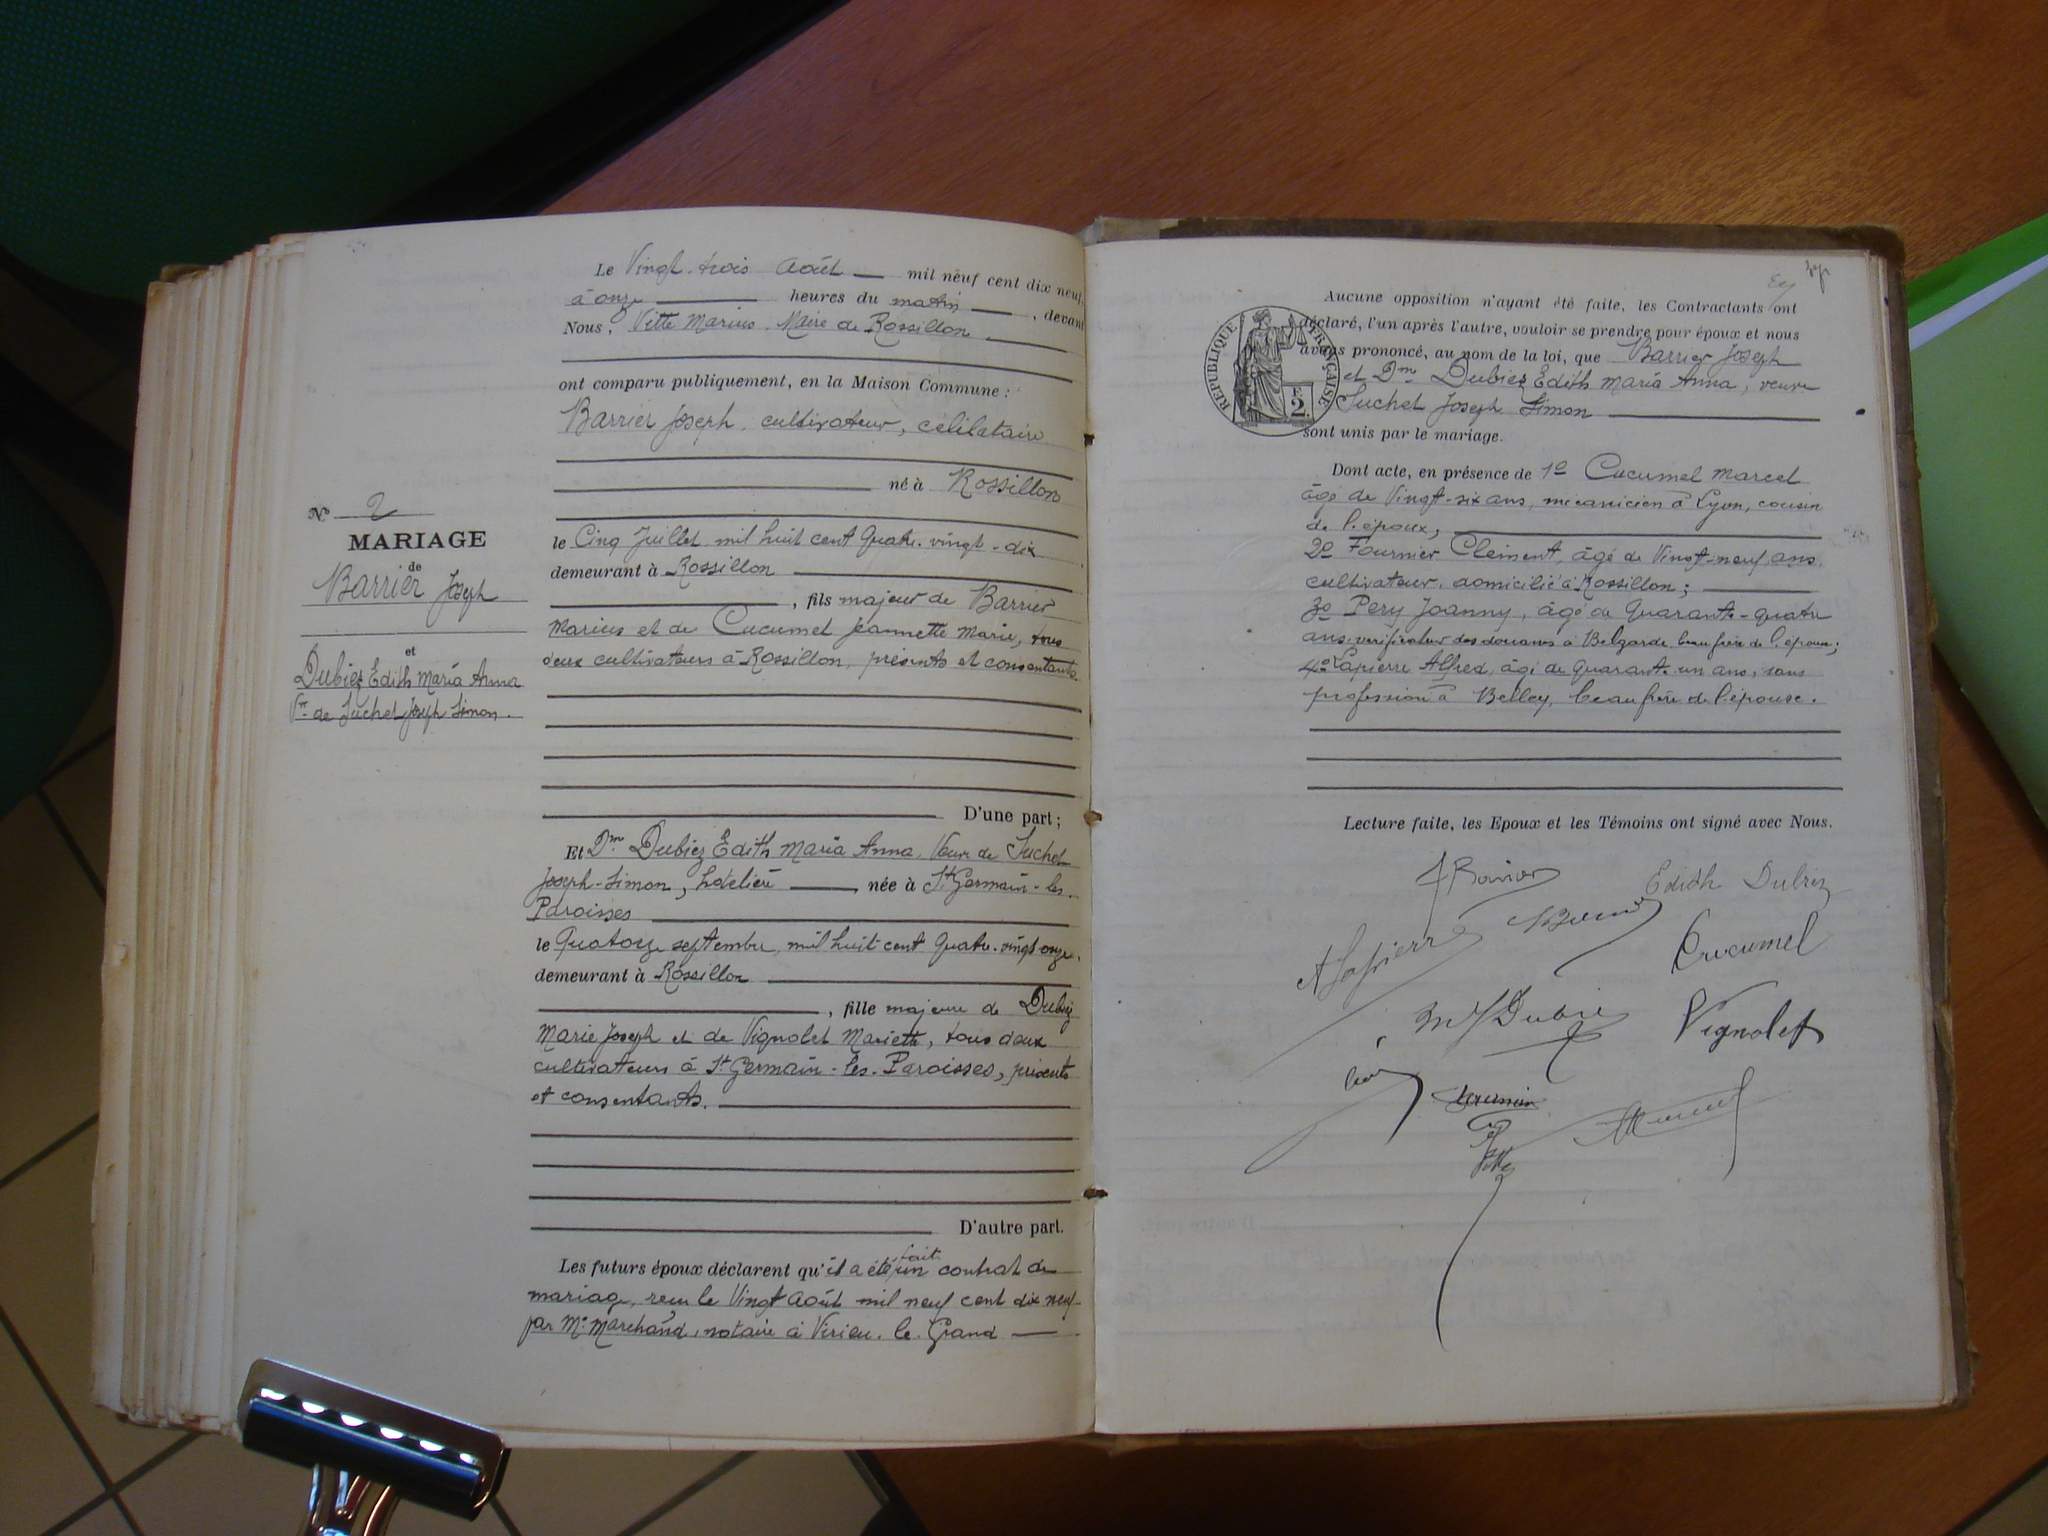 Le Vingt-trois Août mil neuf cent dix neuf,
à onze heures du matin, devant
Nous, Vitte Marius, Maire de Rossillon
ont comparu publiquement, en la Maison Commune:
Barrier Joseph, cultivateur, célibataire
né à Rossillon
le Cinq Juillet mil huit cent Quatre-vingt-dix
demeurant à Rossillon
, fils majeur de Barrier
Marius et de Cucumel Jeannette Marie, tous
deux cultivateurs à Rossillon, présents et consentants
D'une part;
Et Dme Dubiez Edith Maria Anna, Veuve de Suchet
Joseph-Simon, hôtelière née à St Germain-les-
Paroisses
le Quatorze septembre mil huit cent Quatre-vingt-onze,
demeurant à Rossillon
, fille majeure de Dubiez
Marie Joseph et de Vignolet Mariette, tous deux
cultivateurs à St Germain-les-Paroisses, présents
et consentants.
D'autre part.
Les futurs époux déclarent qu'il a été fait un contrat de
mariage, reçu le Vingt Août mil neuf cent dix neuf
par Me Marchand, notaire à Virieu-le-Grand
No 2
MARIAGE
de
Barrier Joseph
et
Dubiez Edith Maria Anna
Vve de Suchet Joseph Simon.
Aucune opposition n'ayant été faite, les Contractants ont
déclaré, l'un après l'autre, vouloir se prendre pour époux et nous
avons prononcé, au nom de la loi, que Barrier Joseph
et Dme Dubiez Edith Maria Anna, veuve
Suchet Joseph Simon
sont unis par le mariage.
RÉPUBLIQUE FRANÇAISE
2
Dont acte, en présence de 1o Cucumel Marcel
âgé de Vingt-six ans, mécanicien à Lyon, cousin
de l'époux;
2o Fournier Clément, âgé de Vingt-neuf ans,
cultivateur, domicilié à Rossillon;
3o Pery Joanny, âgé de Quarante-quatre
ans, vérificateur des douanes à Belgarde, beau frère de l'époux;
4o Lapierre Alfred, âgé de Quarante-un ans, sans
profession à Belley, beau frère de l'épouse.
Lecture faite, les Epoux et les Témoins ont signé avec Nous.
J Barrier
Edith Dubiez
A Lapierre
Cucumel
M J Dubiez
Vignolet